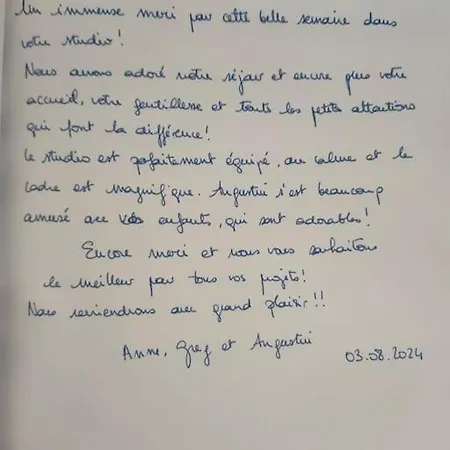 Un immense merci pour cette belle semaine dans
votre studio!
Nous avons adoré notre séjour et encore plus votre
accueil, votre gentillesse et toutes les petites attentions
qui font la différence!
Le studio est parfaitement équipé, au calme et le
cadre est magnifique. Augustin s'est beaucoup
amusé avec vos enfants, qui sont adorables!
Encore merci et nous vous souhaitons
le meilleur pour tous vos projets!
Nous reviendrons avec grand plaisir!!
Anne, Greg et Augustin
03.08.2024